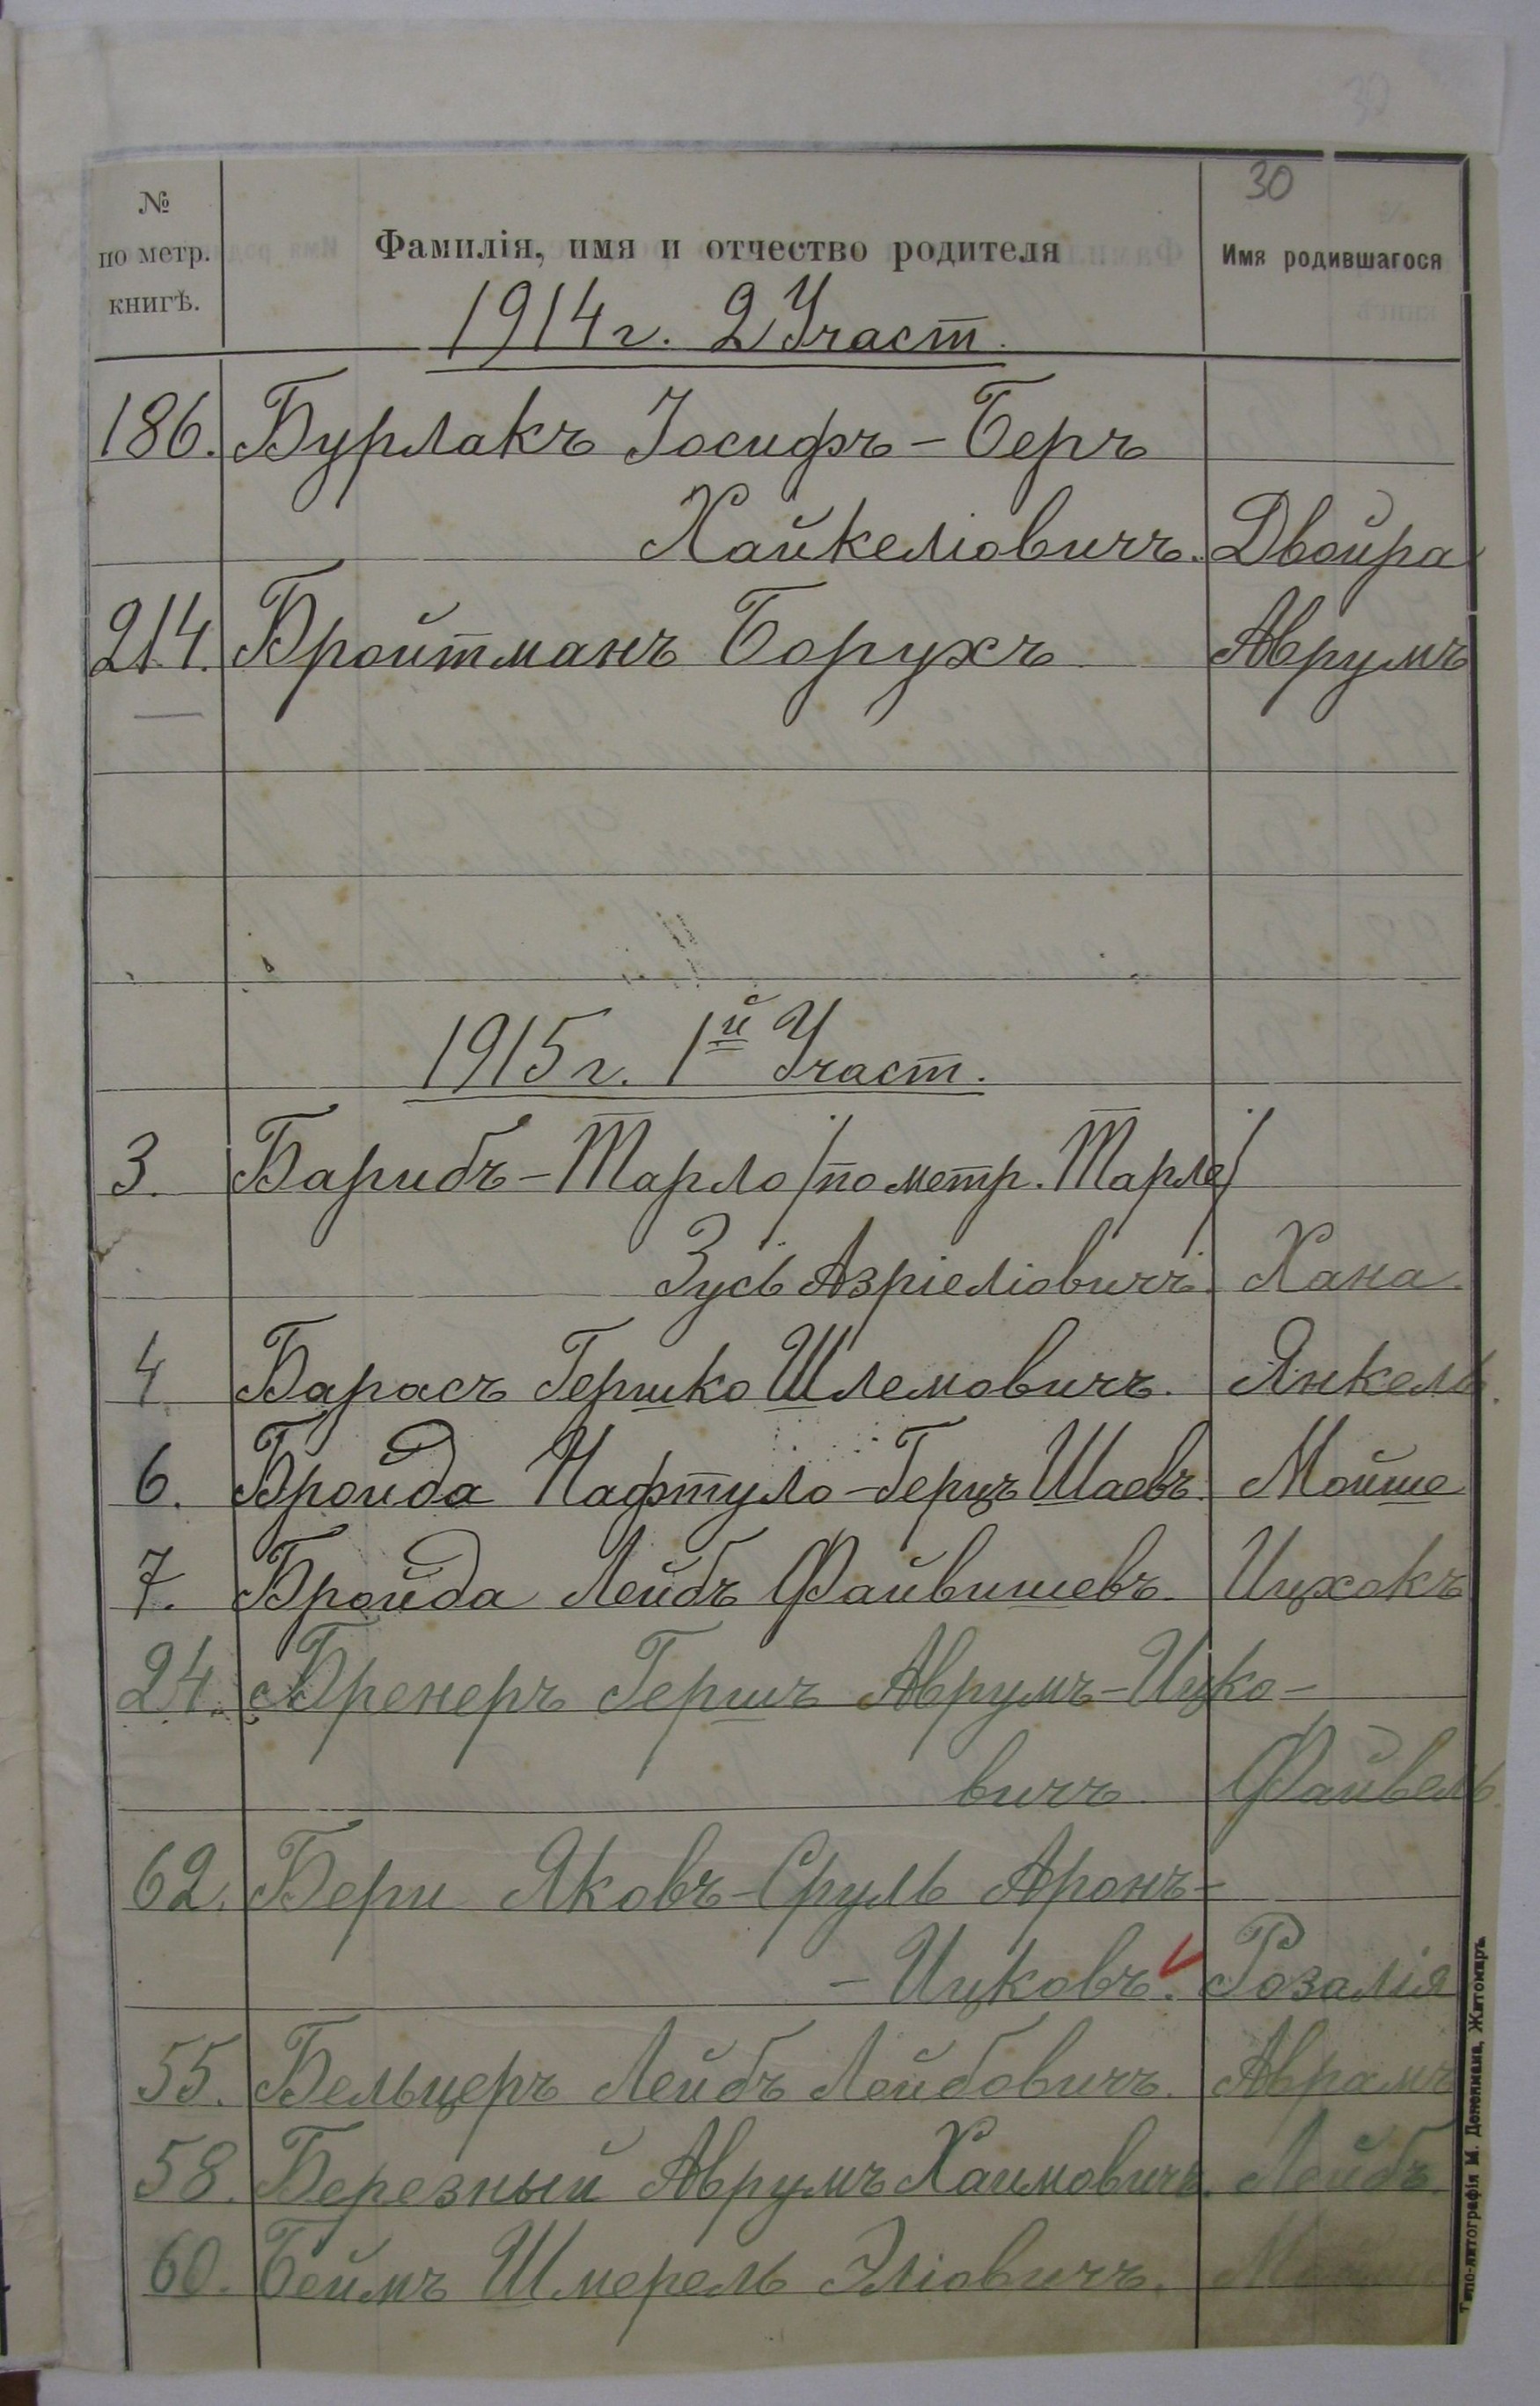 30
№
по метр.
книгѣ.
Фамилія, имя и отчество родителя
Имя родившагося
1914 г. 2 Участ.
186. Бурлакъ Іосифъ-Беръ
Хайкеліовичъ. Двойра
214. Бройтманъ Борухъ Аврумъ
1915 г. 1й Участ.
3. Барибъ-Тарло /по метр. Тарле/
Зусь Азріеліовичъ. Хана
4 Барасъ Гершко Шлемовичъ. Янкель.
6. Бройда Нафтуло-Герцъ Шаевъ. Мойше
7. Бройда Лейбъ Файвишевъ. Ицхокъ
24. Бренеръ Гершъ Аврумъ-Ицко-
вичъ. Файвель.
62. Бери Яковъ-Сруль Аронъ-
-Ицковъ. Розалія
55. Бельцеръ Лейбъ Лейбовичъ. Аврамъ
58. Березный Аврумъ Хаимовичъ. Лейбъ
60. Беймъ Шмерель Эліовичъ.
Типо-литографія М. Дененмана, Житомиръ